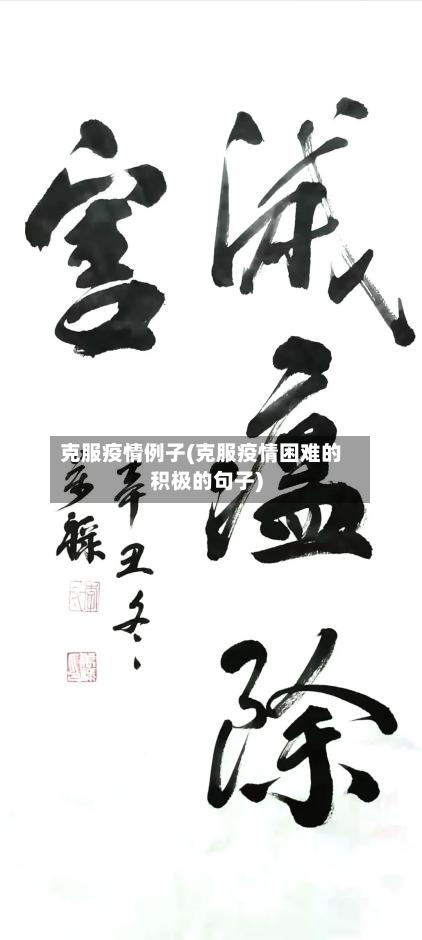 滅瘟除
害
辛丑冬
克服疫情例子(克服疫情困难的
积极的句子)